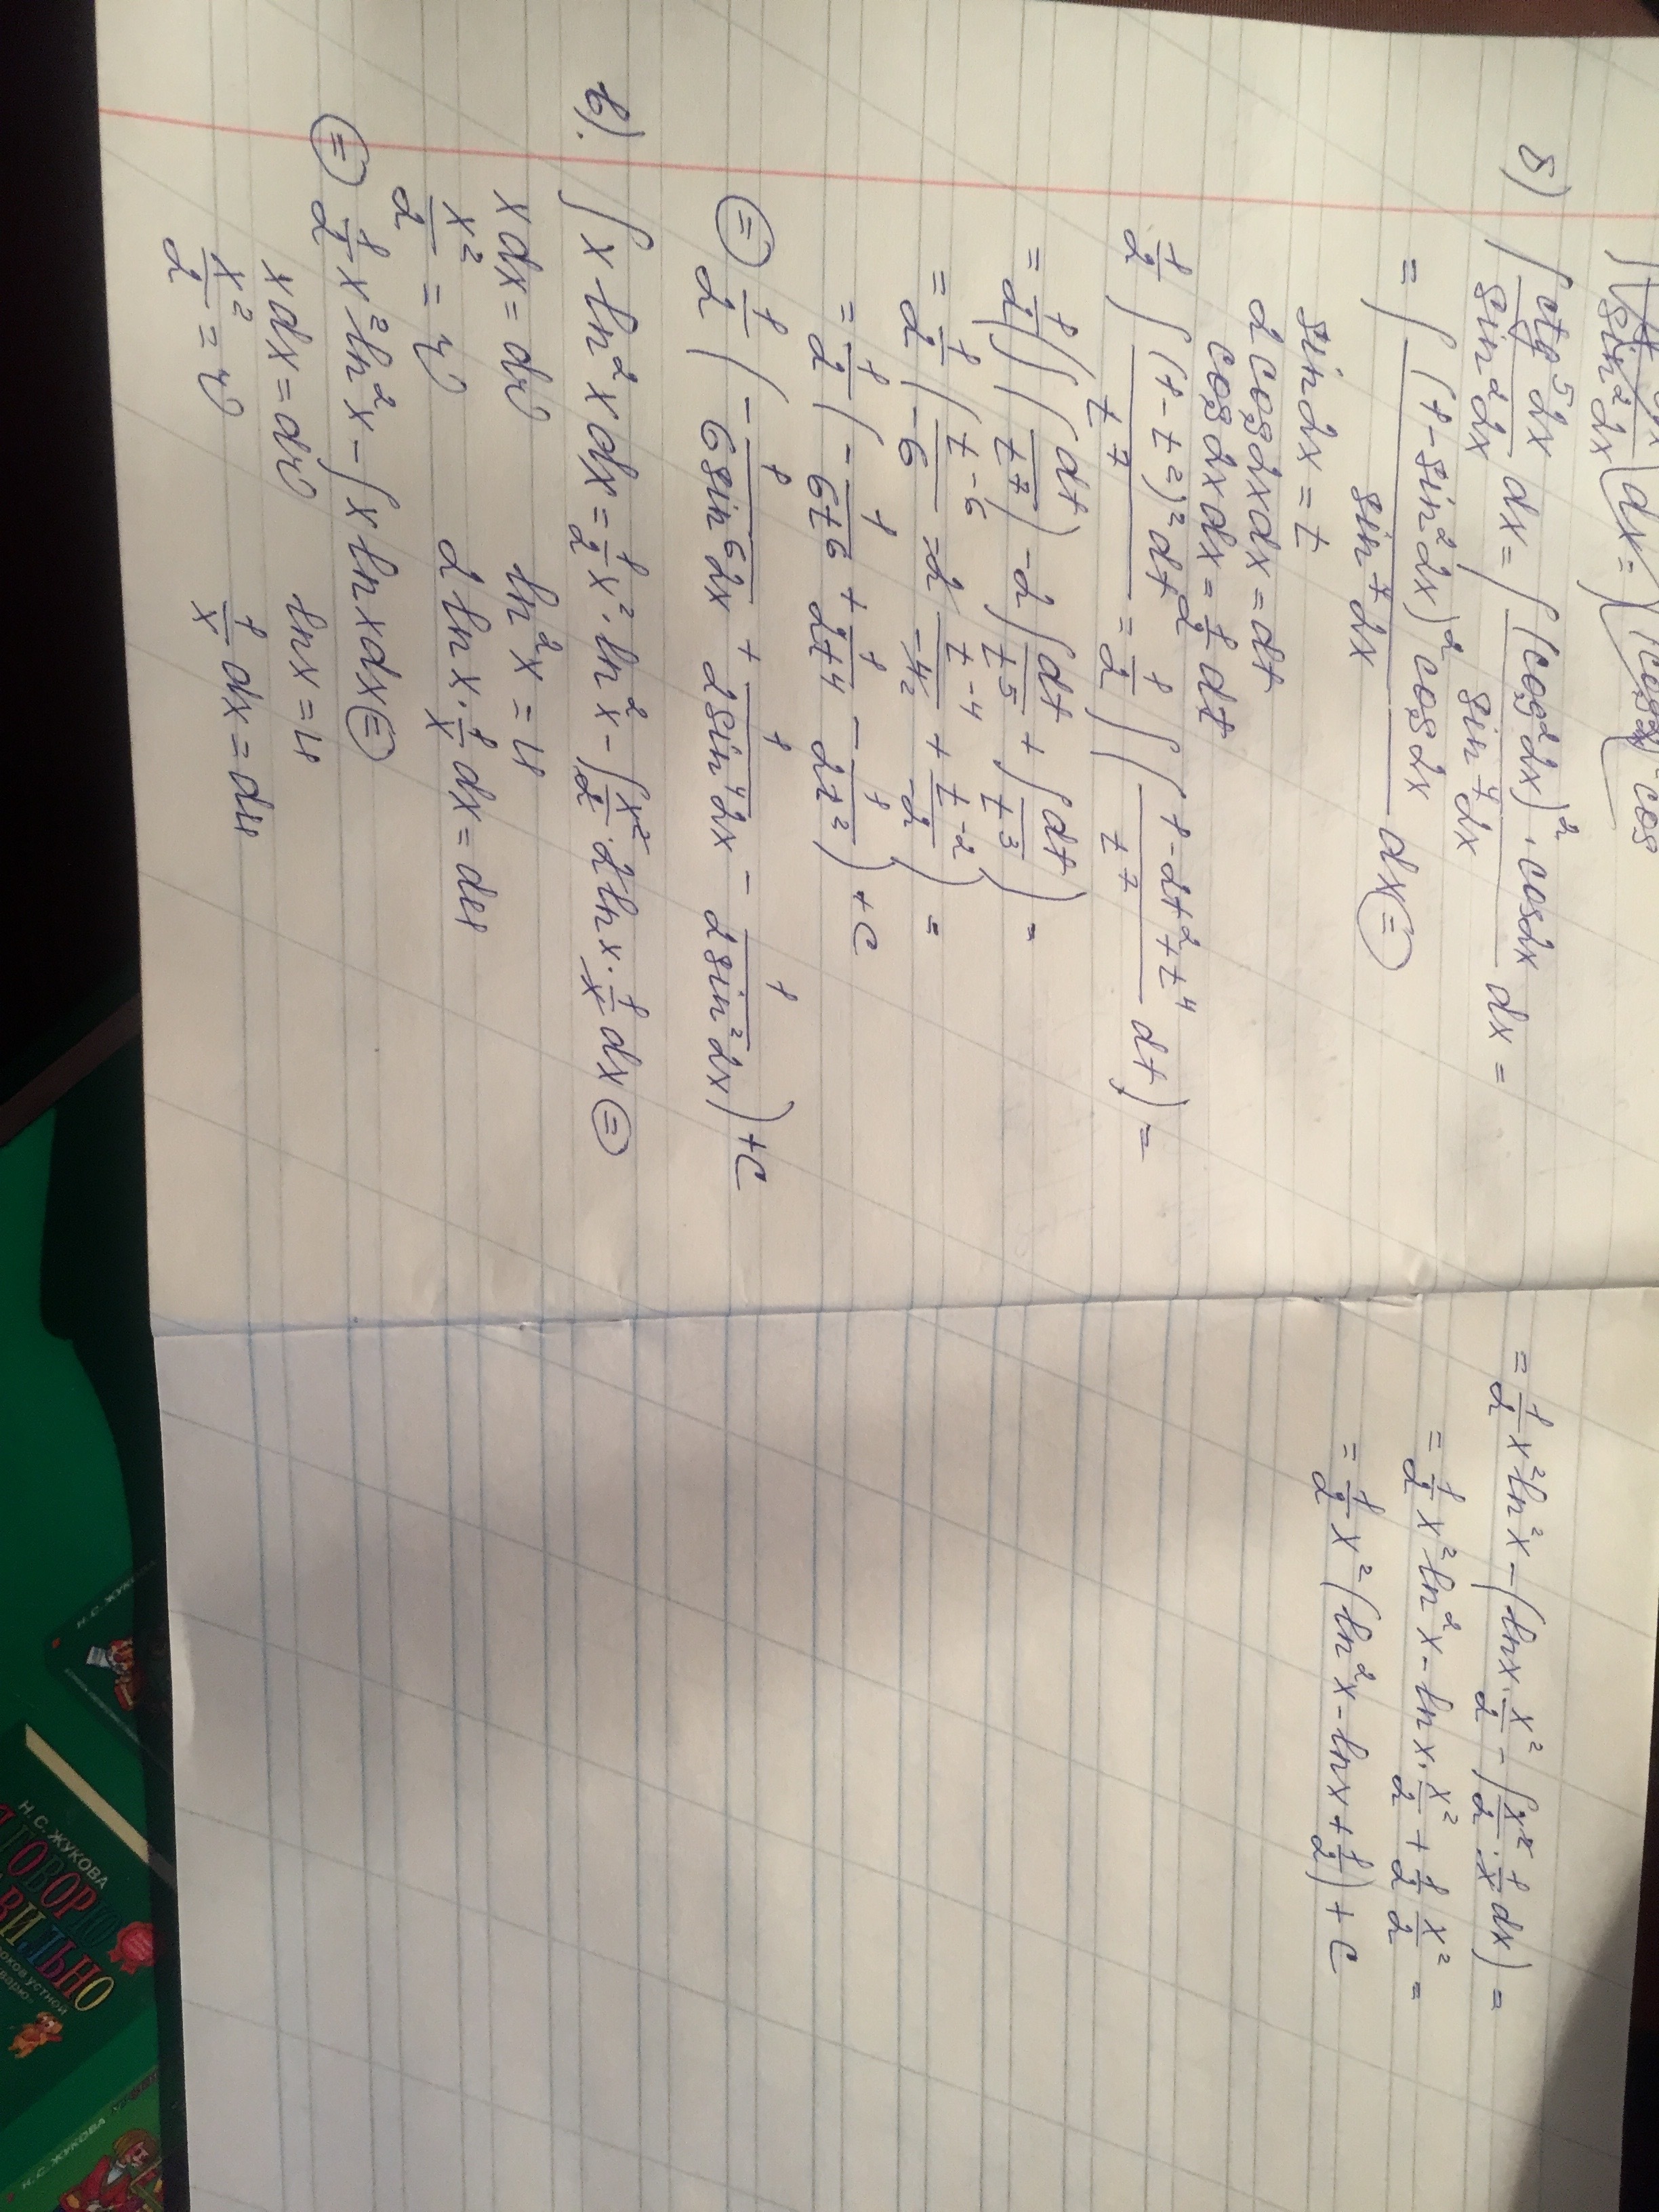 б) ∫ ctg⁵2x / sin²2x dx = ∫ (cos²2x)² · cos2x / sin⁷2x dx =
= ∫ (1 - sin²2x)² cos2x / sin⁷2x dx ⊜
sin2x = t
2cos2xdx = dt
cos2xdx = 1/2 dt
1/2 ∫ (1 - t²)² dt / t⁷ = 1/2 ∫ ( 1 - 2t² + t⁴ / t⁷ dt) =
= 1/2 (∫ ( dt / t⁷ ) - 2 ∫ dt / t⁵ + ∫ dt / t³ ) =
= 1/2 ( t⁻⁶ / -6 - 2 t⁻⁴ / -4 + t⁻² / -2 ) =
= 1/2 ( - 1 / 6t⁶ + 1 / 2t⁴ - 1 / 2t² ) + C
⊜ 1/2 ( - 1 / 6sin⁶2x + 1 / 2sin⁴2x - 1 / 2sin²2x ) + C
в). ∫ x ln²x dx = 1/2 x² · ln²x - ∫ x²/2 · 2lnx · 1/x dx ⊜
x dx = dv ln²x = u
x²/2 = v 2 lnx · 1/x dx = du
⊜ 1/2 x² ln²x - ∫ x lnx dx ⊜
x dx = dv lnx = u
x²/2 = v 1/x dx = du
= 1/2 x² ln²x - (lnx · x²/2 - ∫ x²/2 · 1/x dx) =
= 1/2 x² ln²x - lnx · x²/2 + 1/2 x²/2 =
= 1/2 x² (ln²x - lnx + 1/2) + C
Н. С. ЖУКОВА
Н. С. ЖУКОВА
Я ГОВОРЮ
ПРАВИЛЬНО
Н. С. ЖУКОВА